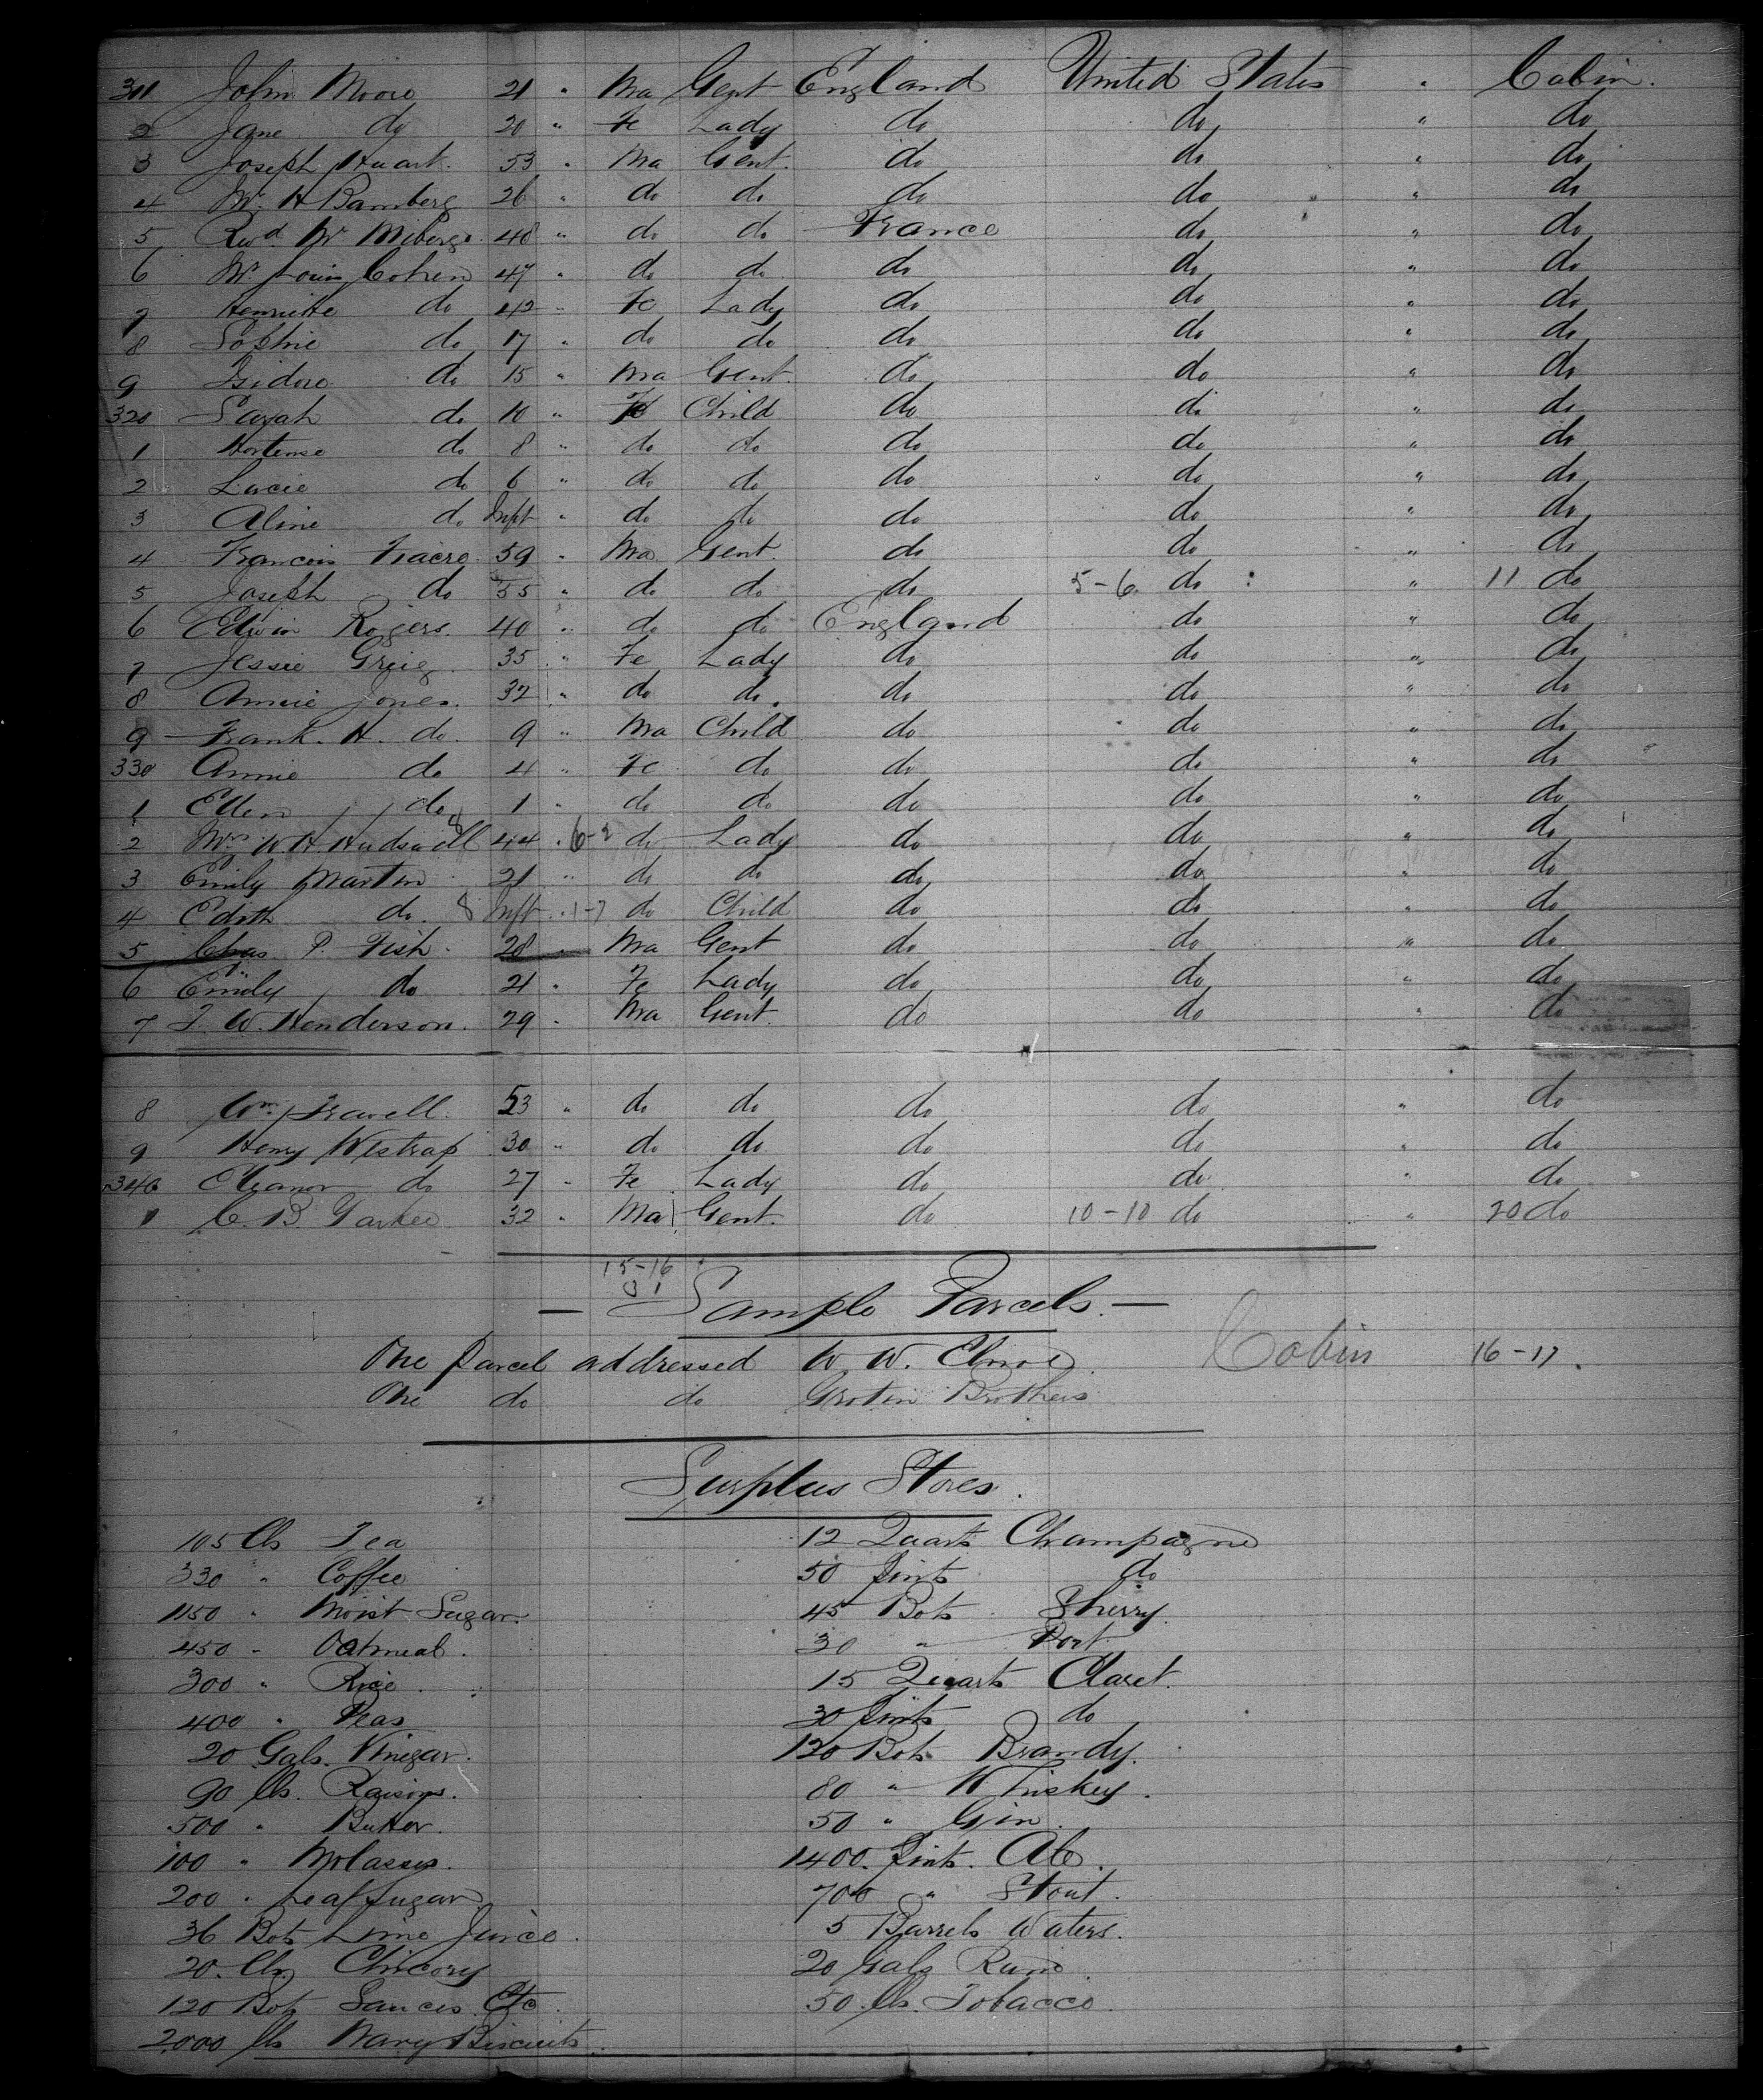 311 John Moore 21 " Ma Gent England United States " Cabin.
2 Jane do 20 " Fe Lady do do " do
3 Joseph Huart. 53 " Ma Gent. do do " do
4 Mr. H Bamberg 26 " do do do do " do
5 Revd. Mr 48 " do do France do " do
6 Mr Louis Cohen 47 " do do do do " do
7 Henriette do 42 " Fe Lady do do " do
8 Sophie do 17 " do do do do " do
9 Isidore do 15 " Ma Gent. do do " do
320 Sarah do 10 " Fe Child do do " do
1 Hortense do 8 " do do do do " do
2 Lucie do 6 " do do do do " do
3 Aline do Inft " do do do do " do
4 Francois Fiacre. 59 " Ma Gent. do do " do
5 Joseph do 55 " do do do 5-6 do " 11 do
6 Edwin Rogers. 40 " do do England do " do
7 Jessie Greig 35 " Fe Lady do do " do
8 Annie Jones. 32 " do do do do " do
9 Frank. H. do. 9 " Ma Child do do " do
330 Annie do 4 " Fe do do do " do
1 Ellen do 1 " do do do do " do
2 Mrs W. H. Hudswell 44 " 6-2 do Lady do do " do
3 Emily Martin 21 " do do do do " do
4 Edith do. 8 Inft " 1-7 do Child do do " do
5 Chas P. Fish. 28 Ma Gent do do " do
6 Emily do 21 " Fe Lady do do " do
7 J. W. Henderson. 29 " Ma Gent. do do " do
8 Wm. 53 " do do do do " do
9 Henry Westrap 30 " do do do do " do
340 Eleanor do 27 " Fe Lady do do " do
1 C. B. 32 " Ma Gent. do 10-10 do " 20 do
15-16
31
— Sample Parcels. —
One Parcel addressed W. W. Cabin 16-17.
One do do Brothers
Surplus Stores.
105 lbs Tea 12 Quarts Champagne
330 " Coffee 50 Pints do
1150 " Moist Sugar. 45 Bots Sherry.
450 " Oatmeal. 30 " Port
300 " Rice. 15 Quarts Claret.
400 " Peas 30 Pints do
20 Gals. Vinigar. 120 Bots Brandy.
90 lbs. Raisins. 80 " Whiskey.
500 " Butter. 50 " Gin.
100 " Molasses. 1400. Pints. Ale.
200 " Loaf Sugar 700 " Stout.
36 Bots Lime Juice. 5 Barrels Waters.
20. lbs Chicory 20 Gals Rum.
120 Bots Sauces Etc. 50 lbs. Tobacco.
2000 lbs Navy Biscuits.